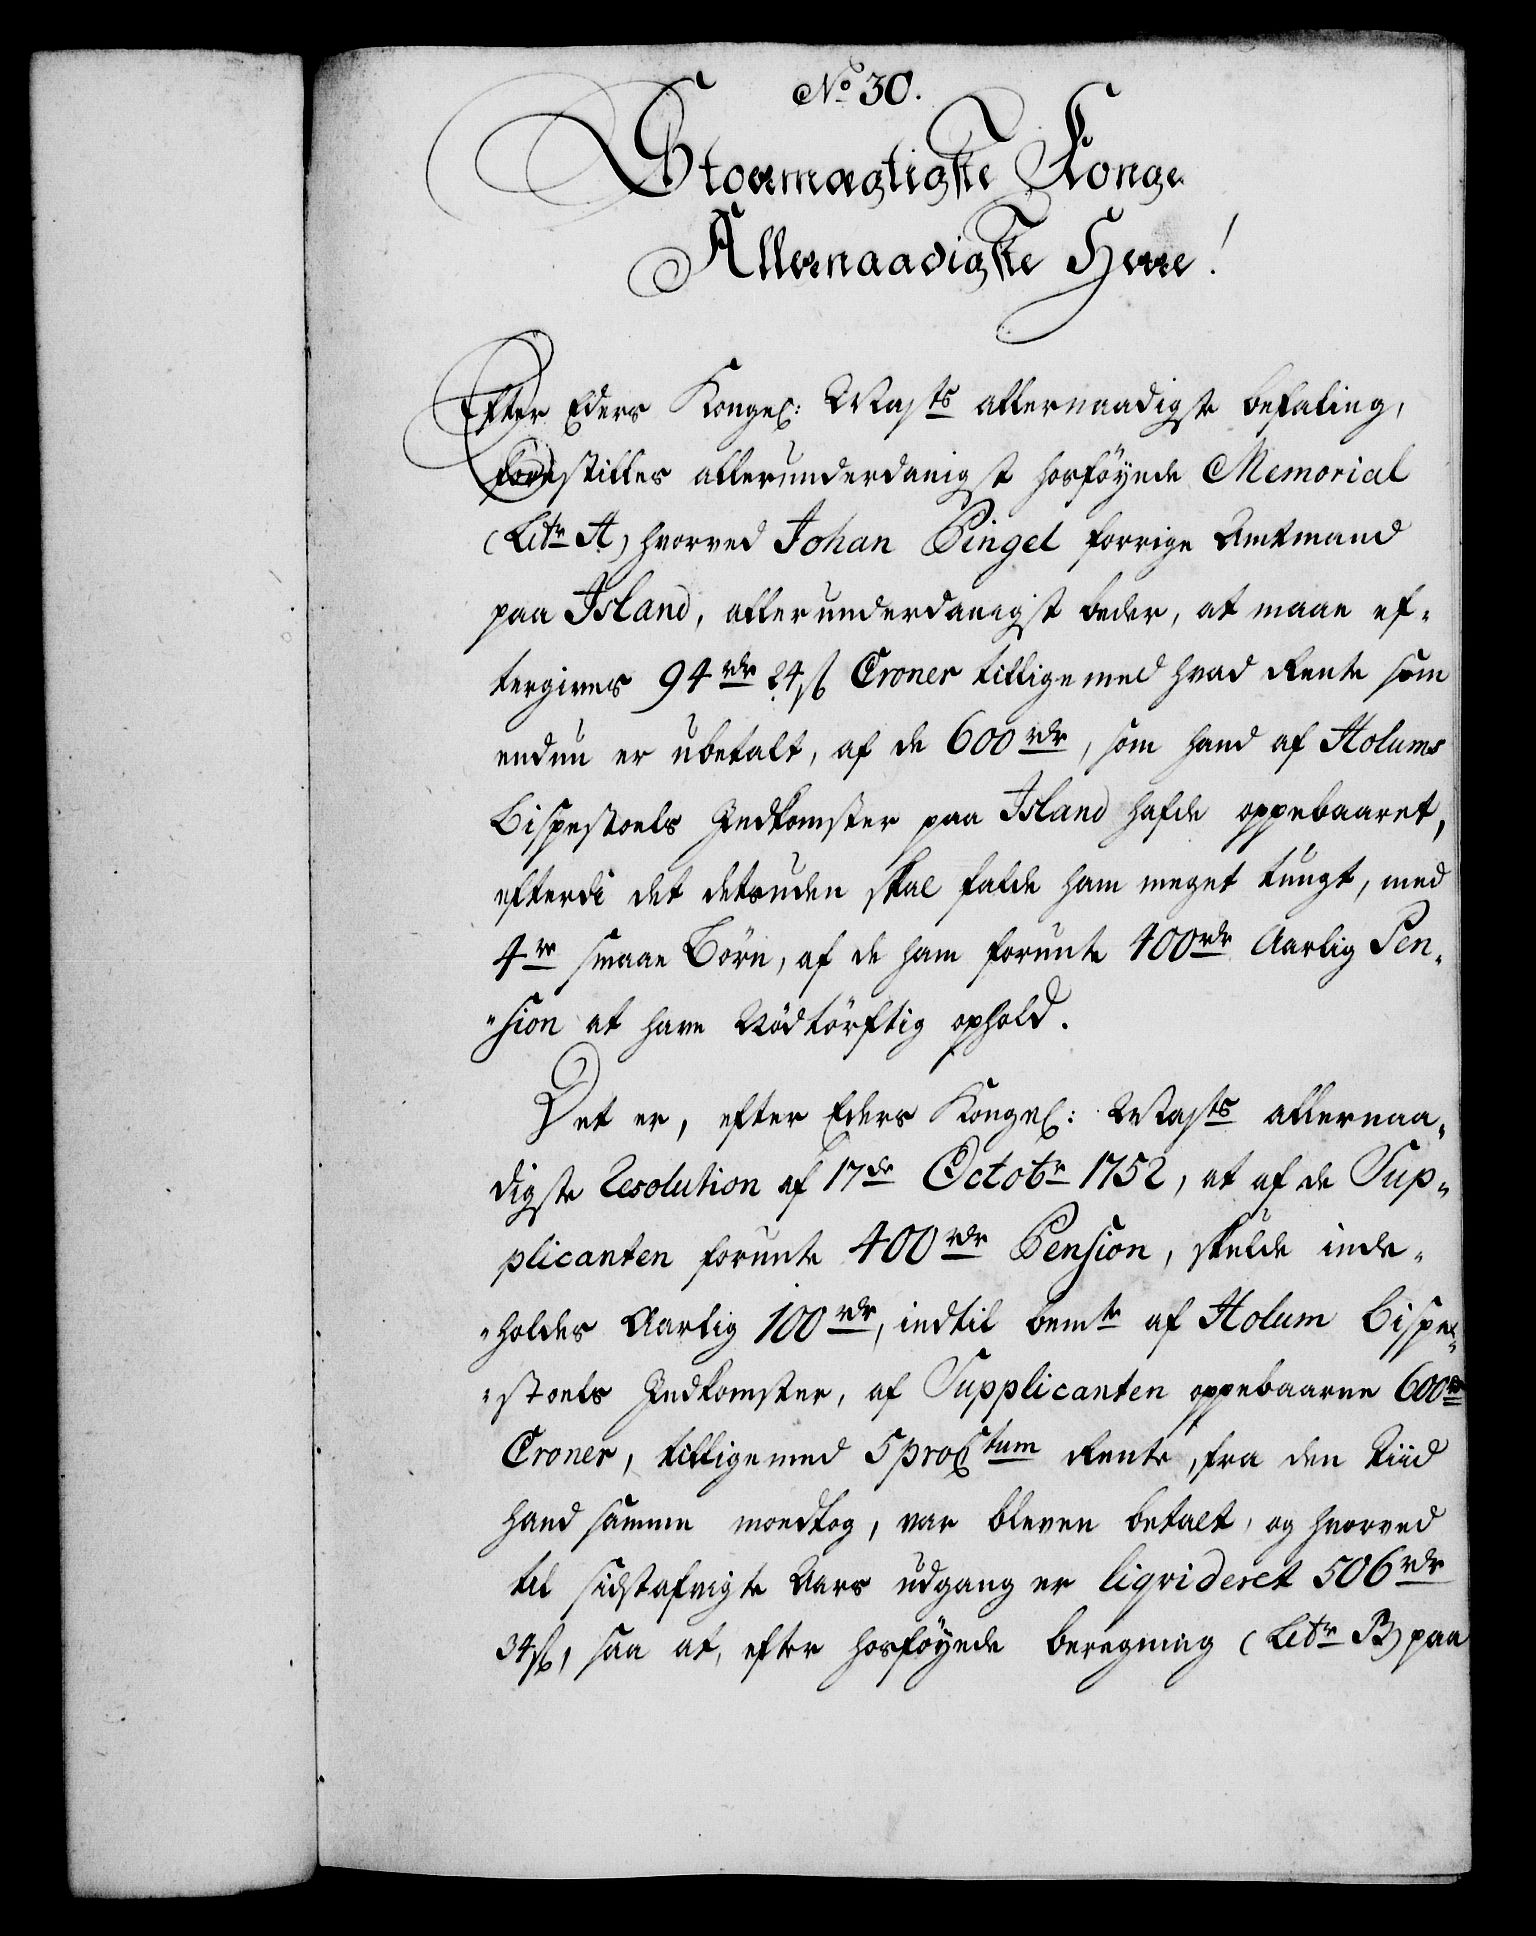 No 30.
Stormægtigste Konge
Allernaadigste Herre!
Efter Eders Kongel: Mayts allernaadigste befaling,
forestilles allerunderdanigst hosföyede Memorial
(Litr A) hvorved Johan Pingel forrige Amtmand
paa Island, allerunderdanigst beder, at maae ef-
tergives 94 rdr 24 s Croner tilligemed hvad Rente som
endnu er ubetalt, af de 600 rdr, som hand af Holums
Bispestoels Indkomster paa Island hafde oppebaaret,
efterdi det desuden skal falde ham meget tungt, med
4re smaae Börn, af de ham forunte 400 rdr Aarlig Pen-
sion at have Nödtörftig ophold.
Det er, efter Eders Kongel: Mayts allernaa-
digste Resolution af 17de Octobr 1752, at af de Sup-
plicanten forunte 400 rdr Pension, skulde inde-
holdes Aarlig 100 rdr, indtil bemte af Holum Bispe-
stoels Indkomster, af Supplicanten oppebaarne 600 rdr
Croner, tilligemed 5 proCtum Rente, fra den Tiid
hand samme modtog, var bleven betalt, og hvorved
til sidstafvigte Aars udgang er liqvideret 506 rdr
34 s, saa at, efter hosföyede beregning (Litr B) paa